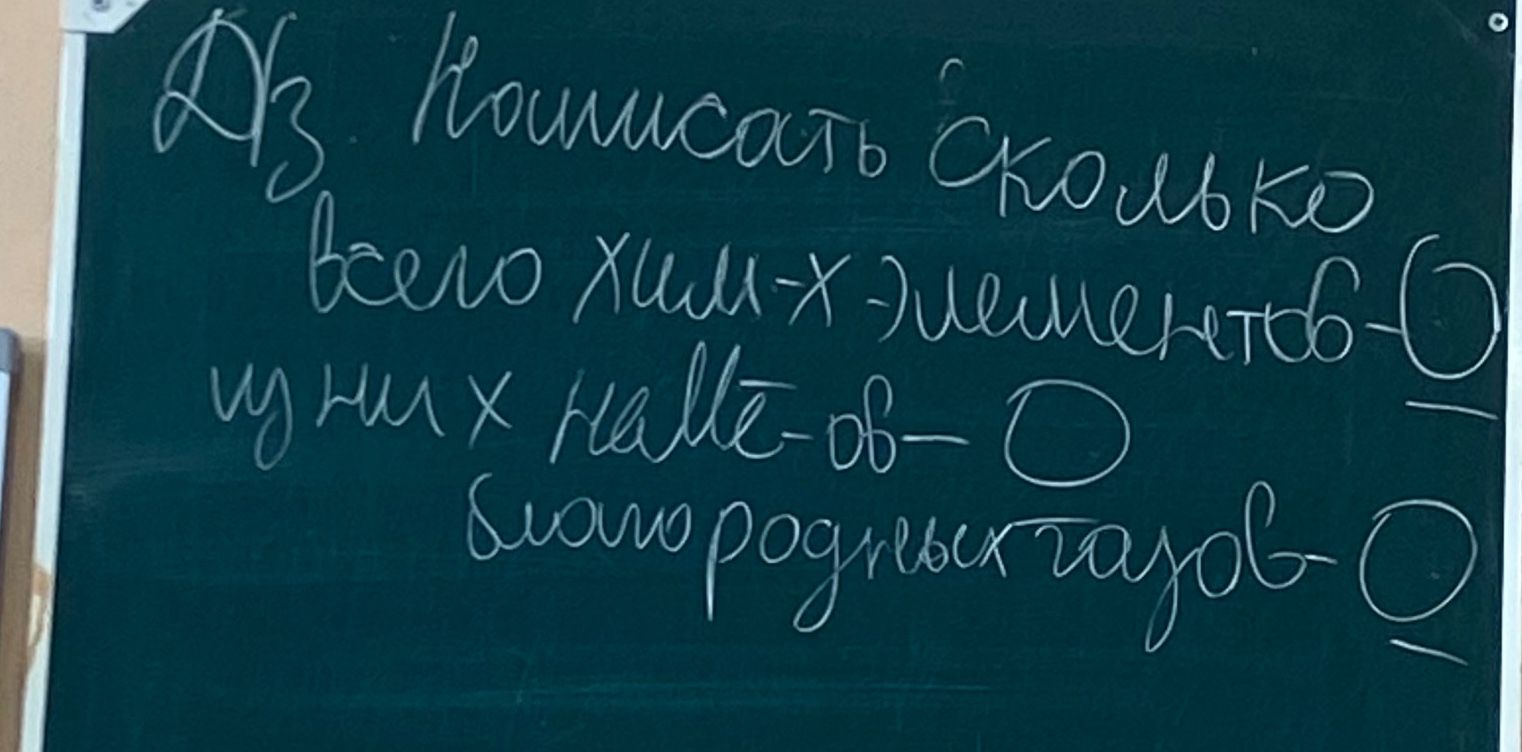 Д/з. Написать сколько
всего хим-х элементов-О
из них неМе-ов- О
благородных газов- О